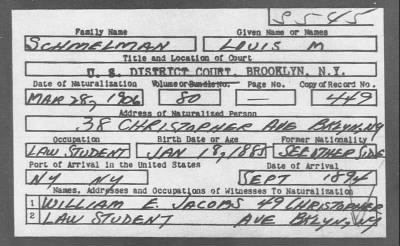 S545
Family Name Given Name or Names
SCHMELMAN LOUIS M
Title and Location of Court
U. S. DISTRICT COURT, BROOKLYN, N.Y.
Date of Naturalization Volume or Bundle No. Page No. Copy of Record No.
MAR 28, 1906 80 — 449
Address of Naturalized Person
38 CHRISTOPHER AVE BKLYN, NY
Occupation Birth Date or Age Former Nationality
LAW STUDENT JAN 18, 1885 SEE OTHER SIDE
Port of Arrival in the United States Date of Arrival
NY NY SEPT 1894
Names, Addresses and Occupations of Witnesses To Naturalization
1 WILLIAM E. JACOBS 49 CHRISTOPHER
2 LAW STUDENT AVE BKLYN, NY